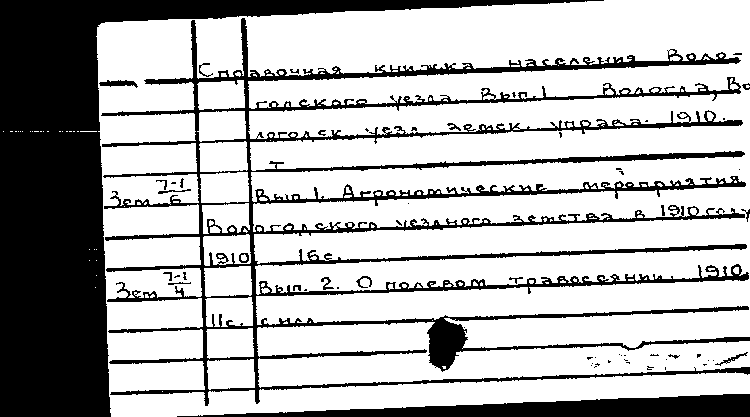 Справочная книжка населения Воло-
годского уезда. Вып. 1 Вологда, Во
логодск. уезд. земск. управа. 1910.
т
Зем 7-1/6 Вып 1. Агрономические мероприятия
Вологодского уездного земства в 1910 году
1910. 16с.
Зем 7-1/4 Вып. 2. О полевом травосеянии. 1910
11с. с илл